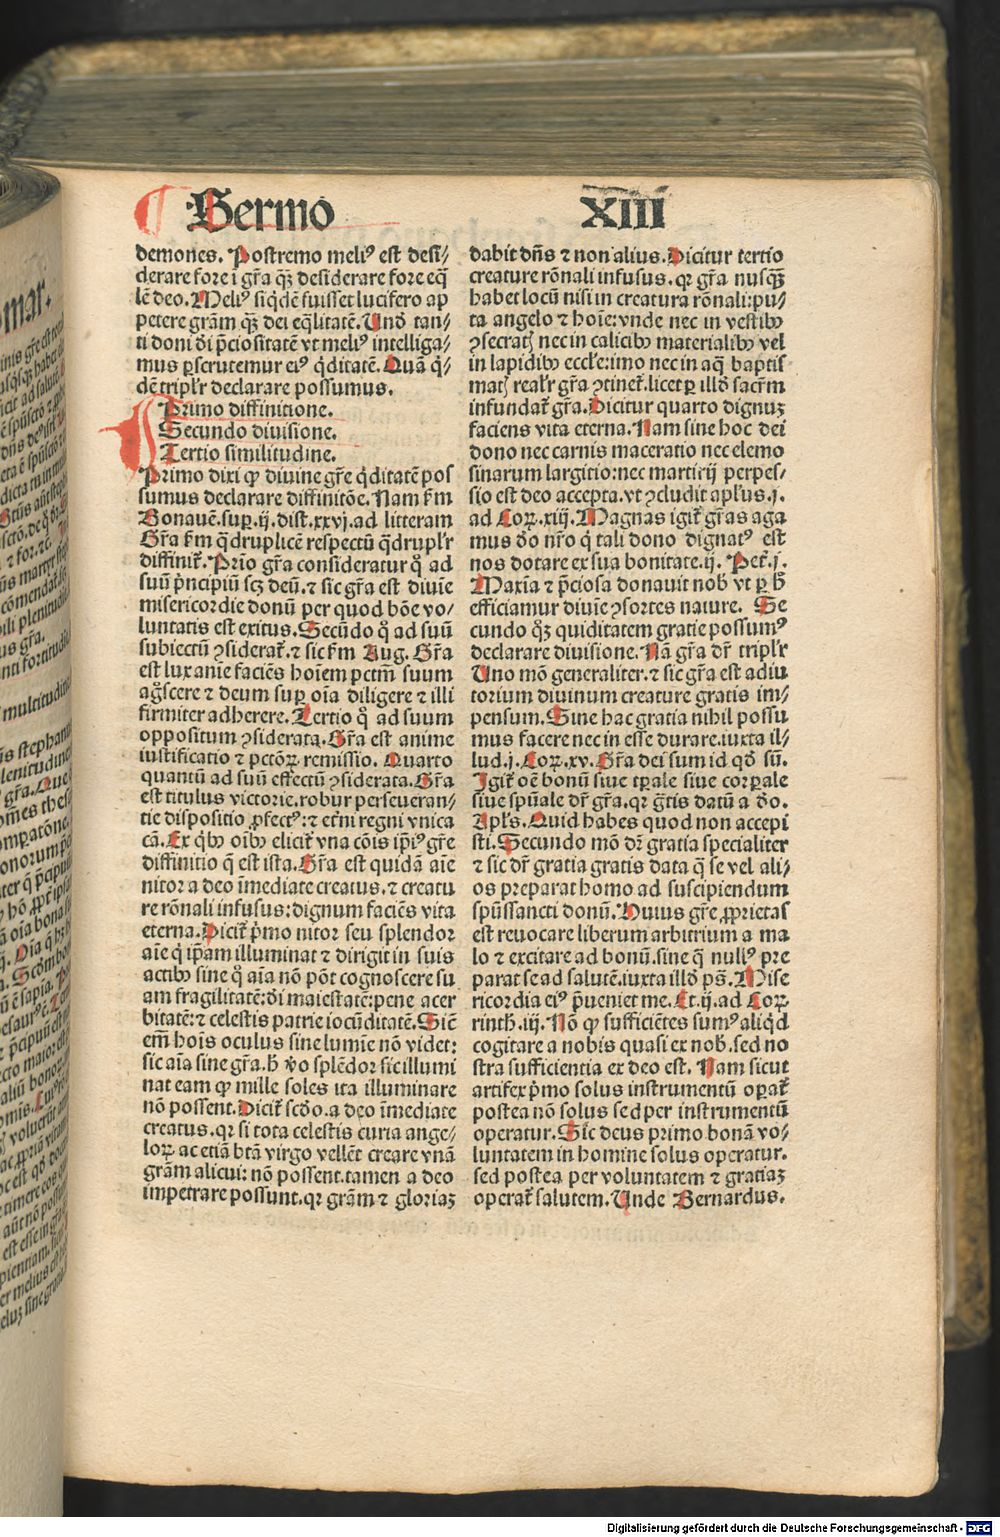 Sermo XIII
demones. Postremo meliꝰ est desi/
derare fore i gr̄a qꝫ̄ desiderare fore eq̄
lē deo. Meliꝰ siqdē fuisset lucifero ap
petere grām qꝫ̄ dei eq̄litatē. Vnd̄ tan/
ti doni di p̄ciositatē vt meliꝰ intelliga/
mus ꝑscrutemur eiꝰ q̇ditatē. Quā q̇/
dē tripl̄r declarare possumus.
Primo diffinitione.
Secundo diuisione.
Tertio similitudine.
Primo dixi ꝙ diuine gr̄e q̇ditatē pos
sumus declarare diffinitōe. Nam ẜm
Bonauē. suꝑ .ij. dist. xxvj. ad litteram
Gr̄a ẜm q̄druplicē respectū q̄drupl̄r
diffinit̄. Prīo gr̄a consideratur qͦ ad
suū p̄ncipiū scꝫ deū. ⁊ sic gr̄a est diuīe
misericordie donū per quod bōe vo/
luntatis est exitus. Secūdo qͦ ad suū
subiectū ꝯsiderat̄. ⁊ sic ẜm Aug. Gr̄a
est lux anīe faciēs hoīem pctm̄ suum
ag̊scere ⁊ deum suꝑ oīa diligere ⁊ illi
firmiter adherere. Tertio qͦ ad suum
oppositum ꝯsiderata. Gr̄a est anime
iustificatio ⁊ pctōꝝ remissio. Quarto
quantū ad suū effectū ꝯsiderata. Gr̄a
est titulus victorie. robur perseueran/
tie dispositio ꝓfectꝰ: ⁊ etm̄i regni vnica
cā. Ex qͥbꝰ oībꝰ elicit̄ vna cōis ip̄iꝰ gr̄e
diffinitio q̄ est ista. Gr̄a est quidā aīe
nitor a deo īmediate creatus. ⁊ creatu
re rōnali infusus: dignum faciēs vita
eterna. Dicit̄ p̄mo nitor seu splendor
aīe q̇ ip̄am illuminat ⁊ dirigit in suis
actibꝰ sine qͦ aīa nō pōt cognoscere su
am fragilitatē: di maiestatē: pene acer
bitatē: ⁊ celestis patrie iocūditatē. Sič
em̄ hois oculus sine lumīe nō videt:
sic aīa sine gr̄a. h̄ v̊o splēdor sic illumi
nat eam ꝙ mille soles ita illuminare
nō possent. Dicit̄ scdo. a deo īmediate
creatus. qꝛ si tota celestis curia ange/
loꝝ ac etiā btā virgo vellēt creare vnā
grām alicui: nō possent. tamen a deo
impetrare possunt. qꝛ grām ⁊ gloriaꝫ
dabit dn̄s ⁊ non alius. Dicitur tertio
creature rōnali infusus. qꝛ gr̄a nusqꝫ̄
habet locū nisi in creatura rōnali: pu/
ta angelo ⁊ hoīe: vnde nec in vestibꝰ
ꝯsecratꝭ nec in calicibꝰ materialibꝰ vel
in lapidibꝰ eccl̄e: imo nec in aq̄ baptis
matꝭ real̄r gr̄a ꝯtinet̄. licet ꝑ illd̄ sacr̄m
infundat̄ gr̄a. Dicitur quarto dignuꝫ
faciens vita eterna. Nam sine hoc dei
dono nec carnis maceratio nec elemo
sinarum largitio: nec martirij perpes/
sio est deo accepta. vt ꝯcludit apl̄us. j.
ad Coꝝ. xiij. Magnas igit̄ gr̄as aga
mus do nr̄o q̇ tali dono dignatꝰ est
nos dotare ex sua bonitate. ij. Pet̄. j.
Maxīa ⁊ p̄ciosa donauit nob̄ vt ꝑ h̄
efficiamur diuīe ꝯsortes nature. Se
cundo qͦꝫ quiditatem gratie possumꝰ
declarare diuisione. Nā gr̄a dr̄ tripl̄r
Uno mō generaliter. ⁊ sic gr̄a est adiu
torium diuinum creature gratis im/
pensum. Sine hac gratia nihil possu
mus facere nec in esse durare. iuxta il/
lud. j. Coꝝ. xv. Gr̄a dei sum id qd̄ sū.
Igit̄ oē bonū siue tꝑale siue corꝑale
siue spūale dr̄ gr̄a. qꝛ gr̄tis datū a do.
Apl̄s. Quid habes quod non accepi
sti. Secundo mō dr̄ gratia specialiter
⁊ sic dr̄ gratia gratis data q̄ se vel ali/
os preparat homo ad suscipiendum
spūssancti donū. Huius gr̄e ꝓprietas
est reuocare liberum arbitrium a ma
lo ⁊ excitare ad bonū. sine q̄ nullꝰ pre
parat se ad salutē. iuxta illd̄ ps̄. Mise
ricordia eiꝰ p̄ueniet me. Et. ij. ad Coꝝ
rinth. iij. Nō ꝙ sufficiētes sumꝰ aliq̇d
cogitare a nobis quasi ex nob. sed no
stra sufficientia ex deo est. Nam sicut
artifex p̄mo solus instrumentū oꝑat̄
postea nō solus sed per instrumentū
operatur. Sic deus primo bonā vo/
luntatem in homine solus operatur.
sed postea per voluntatem ⁊ gratiaꝫ
operat̄ salutem. Vnde Bernardus.
Digitalisierung gefördert durch die Deutsche Forschungsgemeinschaft - DFG